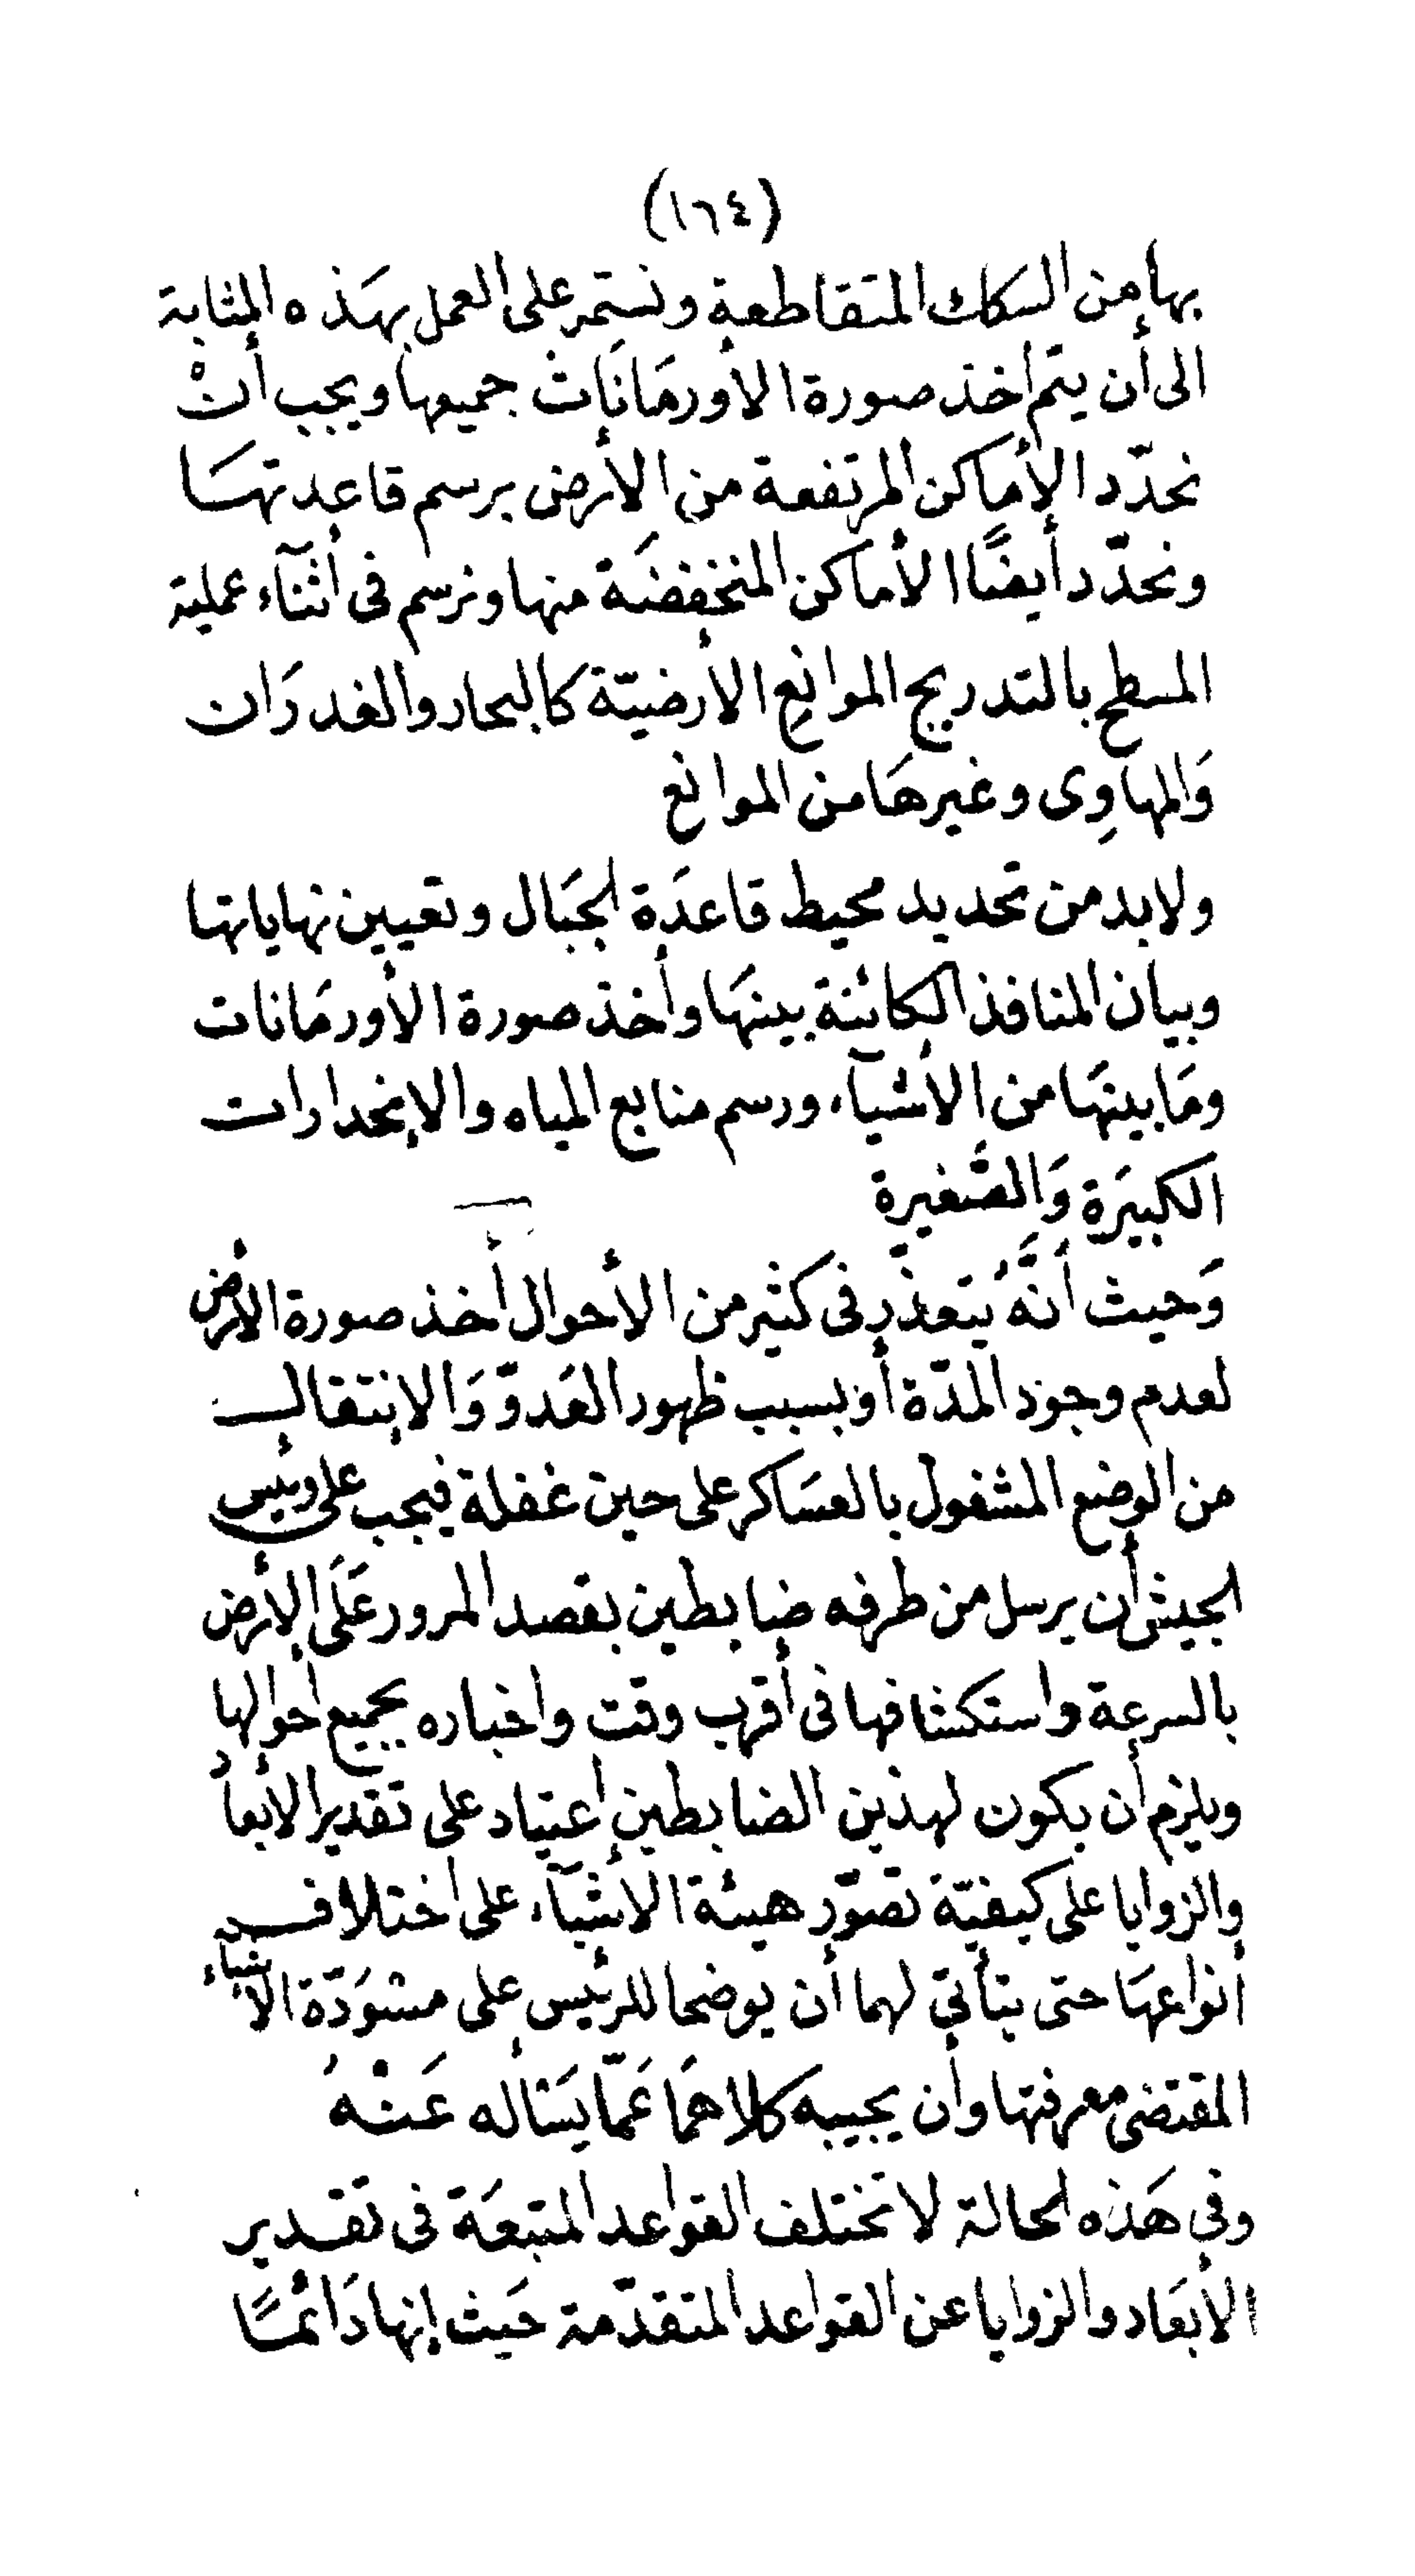 (١٦٤)
بها من السكك المتقاطعة ونستمر على العمل بهَذه المثابة
الى أن يتم أخذ صورة الأورمَانَات جميعها ويجب أنْ
نحدّد الأماكن المرتفعة من الأرض برسم قاعدتهَا
ونحدّد أيضًا الأماكن المنخفضَة منها ونرسم فى أثنآء عملية
المسطح بالتدريج الموانع الأرضيّة كالبحار والغدرَان
وَالمهاوِى وغيرهَا من الموانع
ولابد من تحديد محيط قاعدَة الجبَال وتعيين نهاياتها
وبيان المنافذ الكائنة بينهَا وأخذ صورة الأورمَانات
ومَا بينهَا من الأشيآء ورسم منابع المياه والإنحدارات
الكبيرَة وَالصَّغيرة
وَحيث أنَّهُ يتعذّر فى كثير من الأحوال أخذ صورة الأرض
لعدم وجود المدّة أو بسبب ظهور العَدوّ وَالانتقال
من الوضع المشغول بالعسَاكر على حين غفلة فيجب على رئيس
الجيش أن يرسل من طرفه ضابطين بقصد المرور عَلَى الأرض
بالسرعة واستكشافها فى أقرب وقت واخباره بجميع أحوالها
ويلزم أن يكون لهذين الضابطين إعتياد على تقدير الأبعاد
والزوايا على كيفيّة تصوّر هيئة الأشيآء على اختلاف
أنواعهَا حتى يتأتى لهما أن يوضحا للرئيس على مسْوَدّة الأشيآء
المقتضى معرفتها وأن يجيبه كلاهمَا عَمّا يَسْأله عَنْهُ
وفى هَذه الحالة لا تختلف القواعد المتبعَة فى تقدير
الأبعَاد والزوايا عن القواعد المتقدّمة حَيث إنها دَائمًا